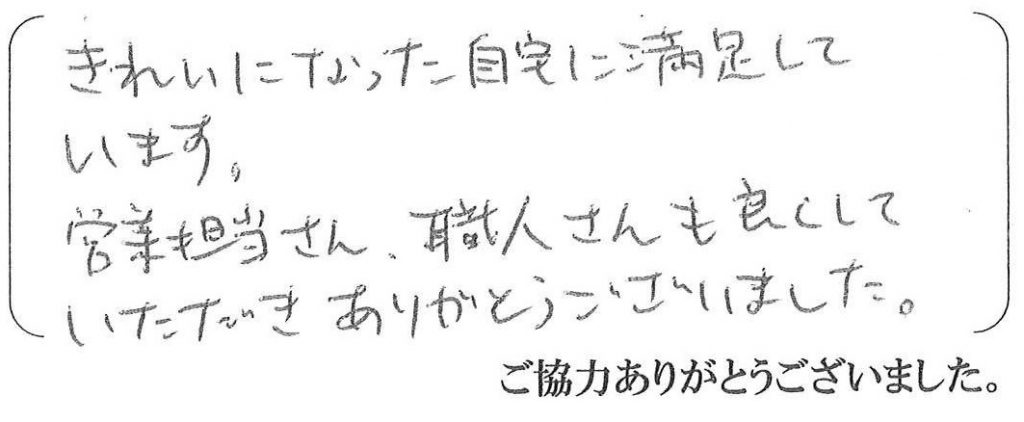 きれいになった自宅に満足して
います。
営業担当さん、職人さんも良くして
いただきありがとうございました。
ご協力ありがとうございました。